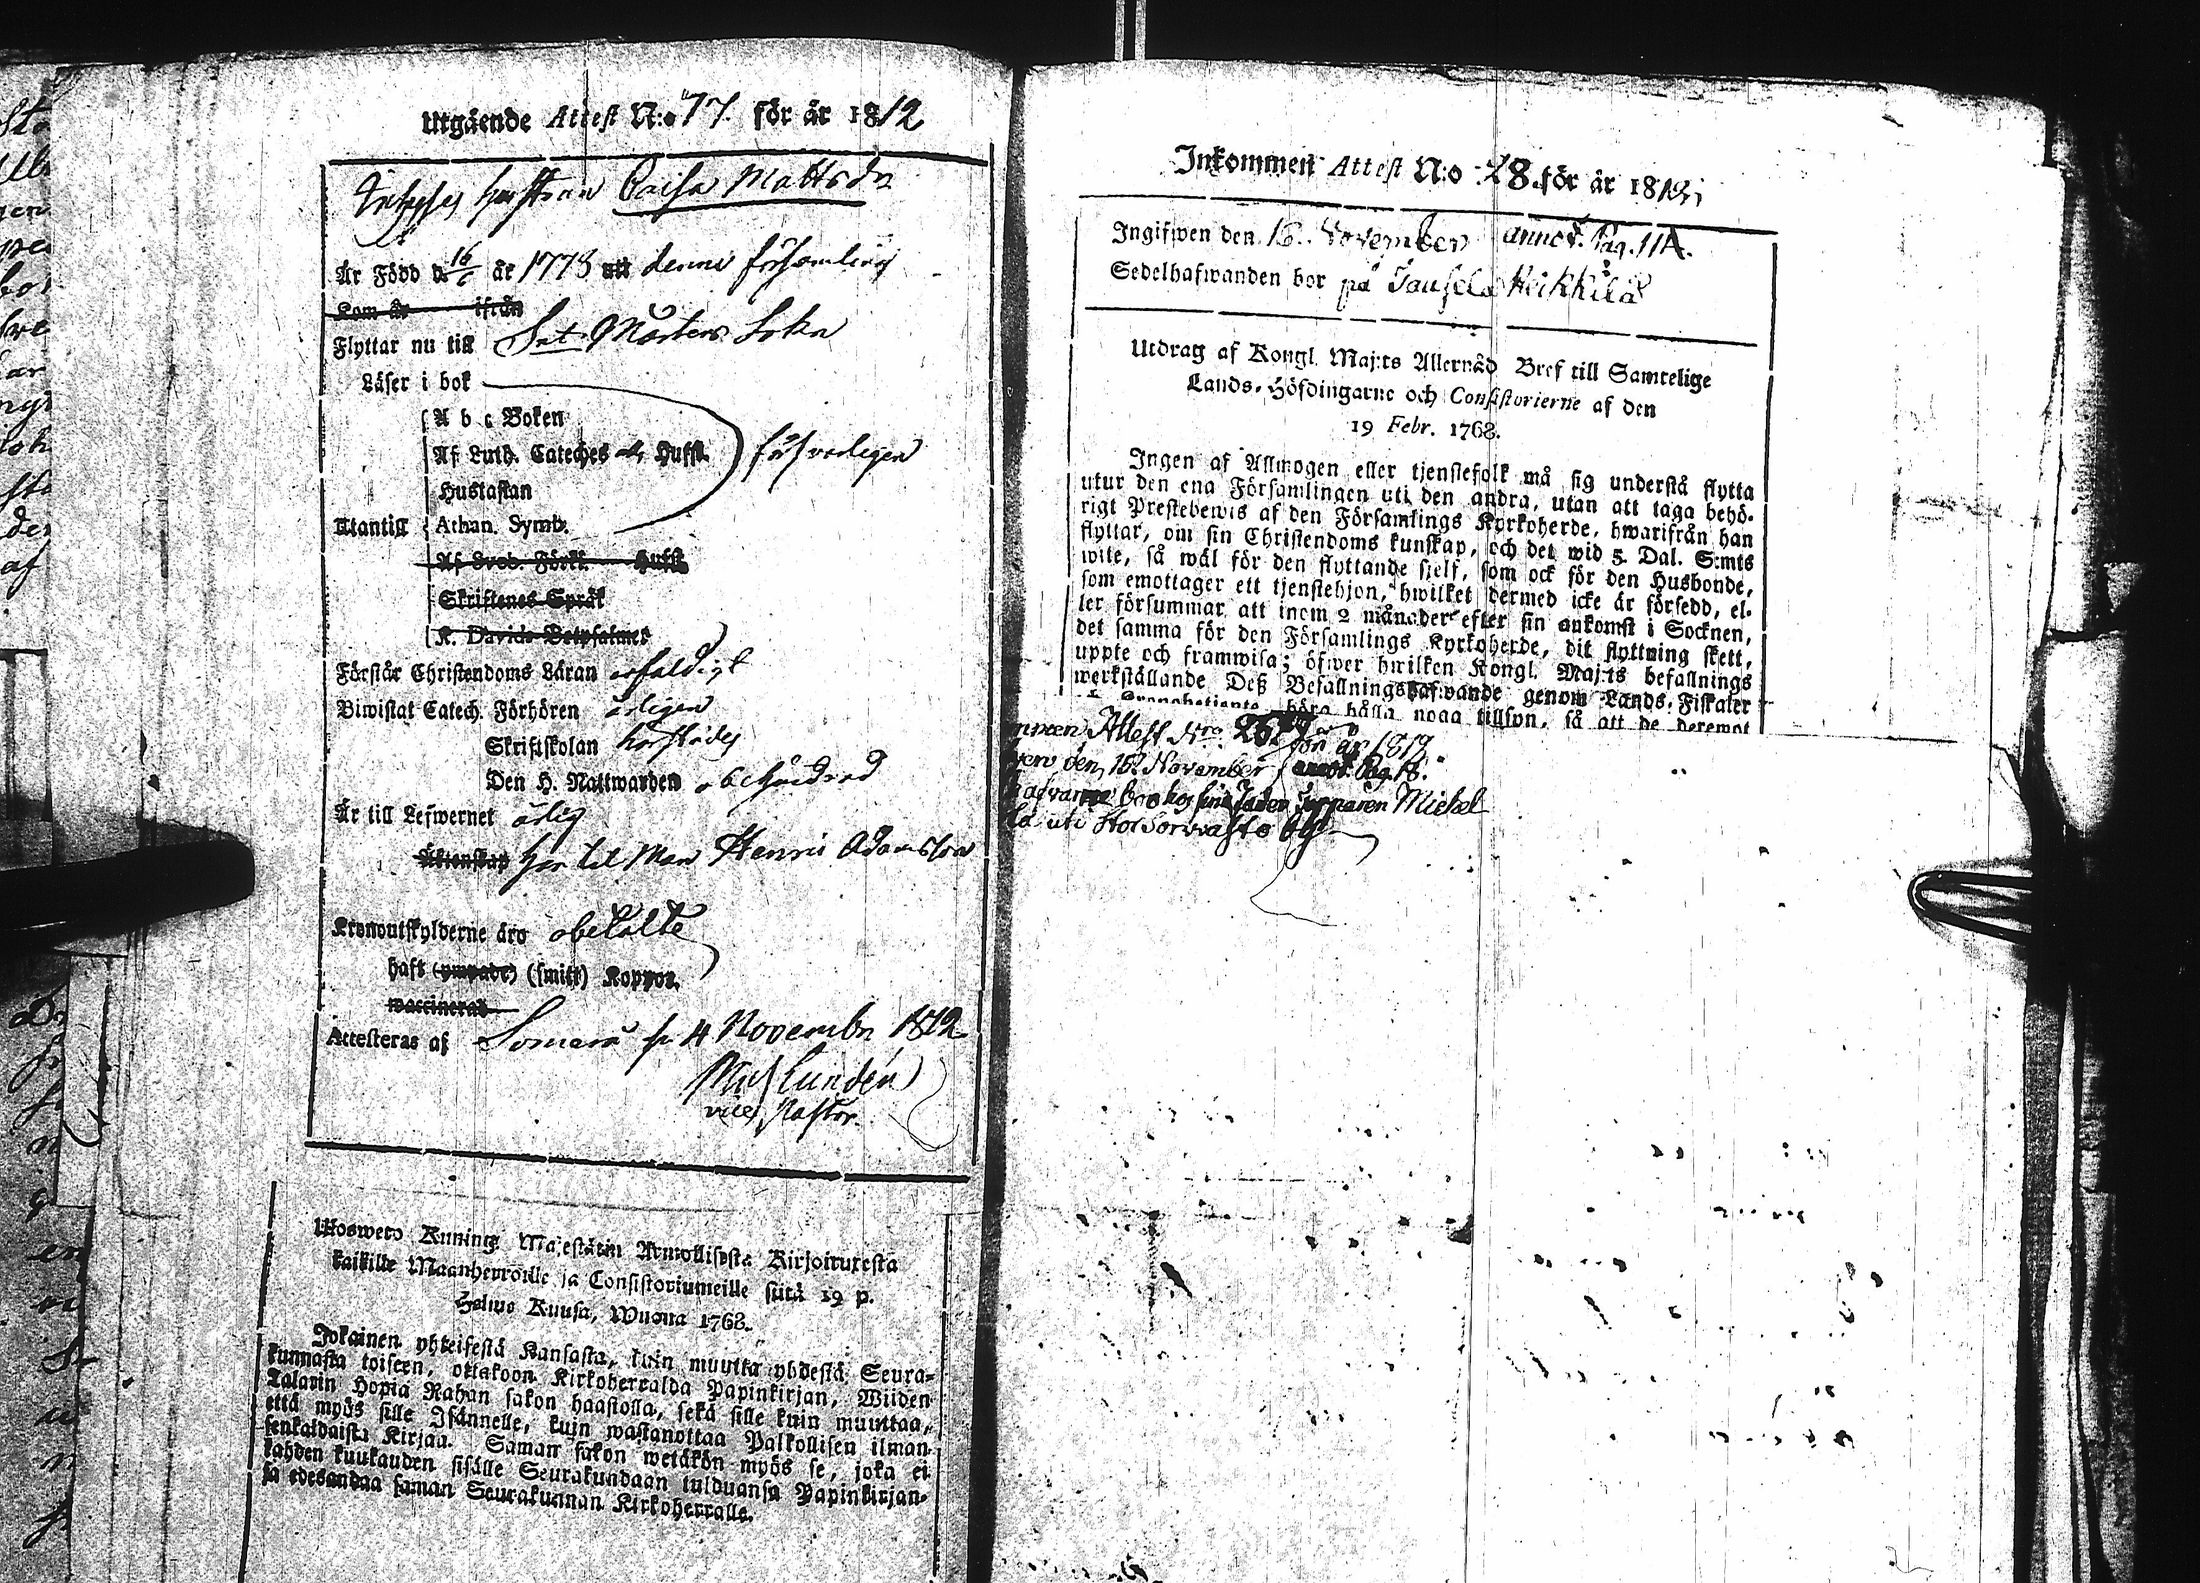 Utgående Attest N:o 77 för år 1812
hustrun Caisa Mattsdr
Är Född d. 16/6 år 1773 uti denna församling
Kom år ifrån
Flyttar nu till Snt Mårtens Sokn
Läser i bok
A b c Boken
Af Luth. Cateches Hufst. försvarligen
Hustaflan
Utantill Athan. Symb.
Af Sveb. Förkl. Hufst.
Skriftenes Språk
K. Davids Botpsalmer
Förstår Christendoms Läran enfaldigt
Biwistat Catech. Förhören årligen
Skriftskolan härstädes
Den H. Nattwarden obehindrad
Är till Lefwernet ärlig
Äktenskap har til Man Henric Adamsson
Kronoutskylderne äro obetalte
haft (ympade) (smitt) Koppor.
waccinerad
Attesteras af Somero 4 Novembr 1812
Lundén
vice Pastor.
Uloswето Kuning. Majestätin Armollisesta Kirjoituxesta
kaikille Maanherroille ja Consistoriumeille siitä 19 p.
Helmo Kuusa, Wuona 1768.
Jokainen yhteisestä Kansasta, kuin muutta yhdestä Seura-
kunnasta toiseen, ottakoon Kirkoherralda Papinkirjan, Wiiden
Talarin Hopia Rahan sakon haastolla, sekä sille kuin muuttaa,
että myös sille Isännelle, kuin wastanottaa Palkollisen ilman
senkaldaista Kirjaa. Saman sakon wetäkön myös se, joka ei
kahden kuukauden sisälle Seurakundaan tulduansa Papinkirjan-
sa edesandaa saman Seurakunnan Kirkoherralle.
Inkommen Attest N:o 28 för år 1812
Ingifwen den 16 November annot. Pag. 114.
Sedelhafwanden bor på Heikkilä
Utdrag af Kongl. Maj:ts Allernåd Bref till Samtelige
Lands-Höfdingarne och Consistorierne af den
19 Febr. 1768.
Ingen af Allmogen eller tjenstefolk må sig understå flytta
utur den ena Församlingen uti den andra, utan att taga behö-
rigt Prestebewis af den Församlings Kyrkoherde, hwarifrån han
flyttar, om sin Christendoms kunskap, och det wid 5 Dal. S:mts
wite, så wäl för den flyttande sjelf, som ock för den Husbonde,
som emottager ett tjenstehjon, hwilket dermed icke är försedd, el-
ler försummar att inom 2 månader efter sin ankomst i Socknen,
det samma för den Församlings Kyrkoherde, dit flyttning skett,
uppte och framwisa; öfwer hwilken Kongl. Maj:ts befallnings
werkställande Deß Befallningshafwande genom Lands-Fiskaler
böra hålla noga tillsyn, så att de deremot
Attest Nro för år 1812
den 15 November annot. Pag. 18.
bor hos Michel
uti by